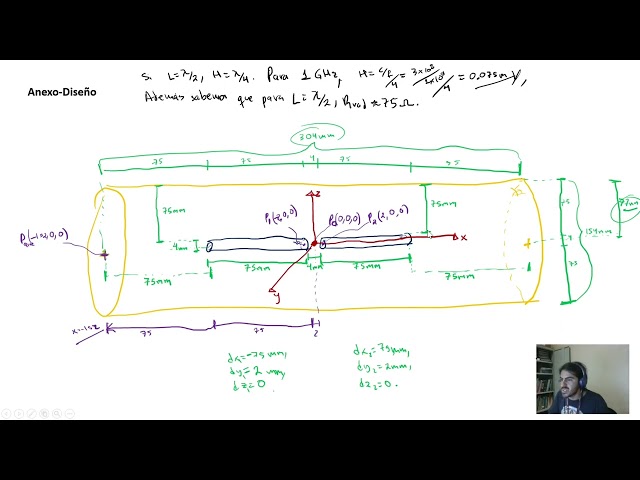 Anexo-Diseño
Si L=λ/2, H=λ/4. Para 1 GHz, H = c/f/4 = 3×10⁸/1×10⁹/4 = 0,075m
Además sabemos que para L=λ/2, Rrad≈75Ω.
304mm
75 75 4 75 75
75mm
75mm
P1(-2,0,0) P0(0,0,0) P2(2,0,0)
z
x
y
4mm
75mm 75mm 4mm 75mm 75mm
75
4
75
154mm
77mm
x=-152
75 75 2
dx1=-75mm,
dy1=2mm,
dz1=0
dx2=75mm,
dy2=2mm,
dz2=0.